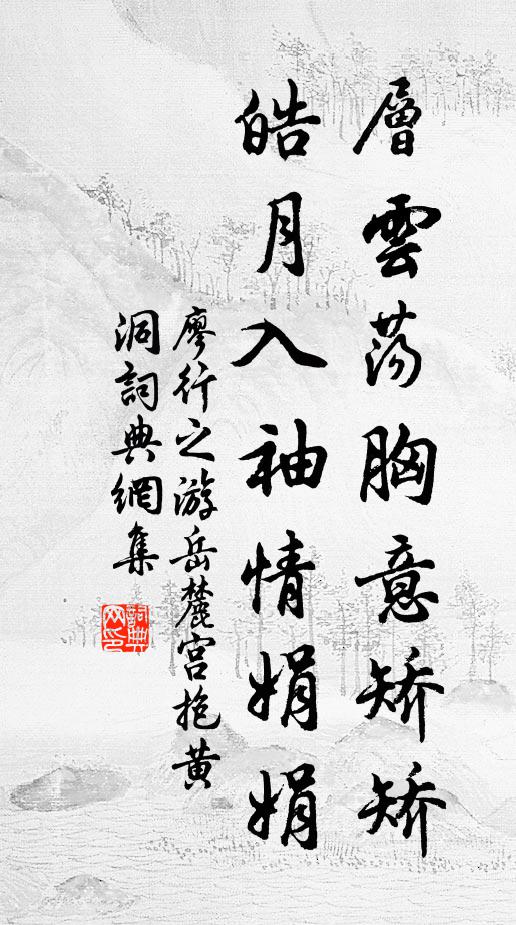 層雲荡胸意矯矯
皓月入袖情娟娟
廖行之游岳麓宮抱黄
洞詞典網集
詞典网印